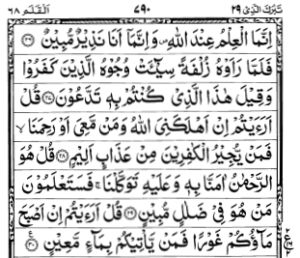 تَبٰرَكَ الَّذِىْ ٢٩ ٧٩٠ الْقَلَم ٦٨
اِنَّمَا الْعِلْمُ عِنْدَ اللّٰهِ وَاِنَّمَآ اَنَا نَذِيْرٌ مُّبِيْنٌ ﴿٢٦﴾
فَلَمَّا رَاَوْهُ زُلْفَةً سِيْٓئَتْ وُجُوْهُ الَّذِيْنَ كَفَرُوْا
وَقِيْلَ هٰذَا الَّذِىْ كُنْتُمْ بِهٖ تَدَّعُوْنَ ﴿٢٧﴾ قُلْ
اَرَءَيْتُمْ اِنْ اَهْلَكَنِىَ اللّٰهُ وَمَنْ مَّعِىَ اَوْ رَحِمَنَا ۙ
فَمَنْ يُّجِيْرُ الْكٰفِرِيْنَ مِنْ عَذَابٍ اَلِيْمٍ ﴿٢٨﴾ قُلْ هُوَ
الرَّحْمٰنُ اٰمَنَّا بِهٖ وَعَلَيْهِ تَوَكَّلْنَا ۚ فَسَتَعْلَمُوْنَ
مَنْ هُوَ فِىْ ضَلٰلٍ مُّبِيْنٍ ﴿٢٩﴾ قُلْ اَرَءَيْتُمْ اِنْ اَصْبَحَ
مَآؤُكُمْ غَوْرًا فَمَنْ يَّاْتِيْكُمْ بِمَآءٍ مَّعِيْنٍ ﴿٣٠﴾